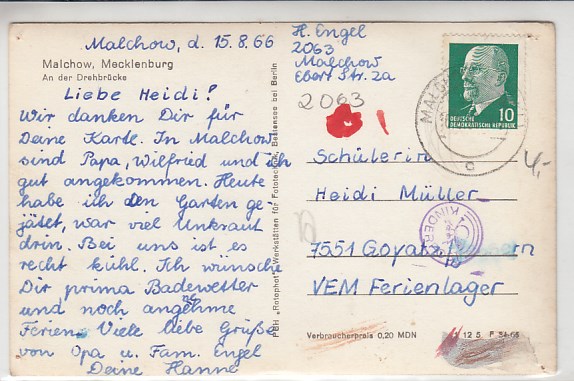 Malchow, d. 15.8.66
Malchow, Mecklenburg
An der Drehbrücke
Liebe Heidi!
Wir danken Dir für
Deine Karte. In Malchow
sind Papa, Wilfried und ich
gut angekommen. Heute
habe ich den Garten ge-
jätet, war viel Unkraut
drin. Bei uns ist es
recht kühl. Ich wünsche
Dir prima Badewetter
und noch angenehme
Ferien. Viele liebe Grüße
von Opa u. Fam. Engel
Deine Hanne
PBH „Rotophot" Werkstätten für Fototechnik, Bestensee bei Berlin
H. Engel
2063
Malchow
Ebert Str. 2a
2063
10
DEUTSCHE
DEMOKRATISCHE REPUBLIK
c
4,-
Schülerin
Heidi Müller
KINDER
7551 Goyatz
VEM Ferienlager
Verbraucherpreis 0,20 MDN